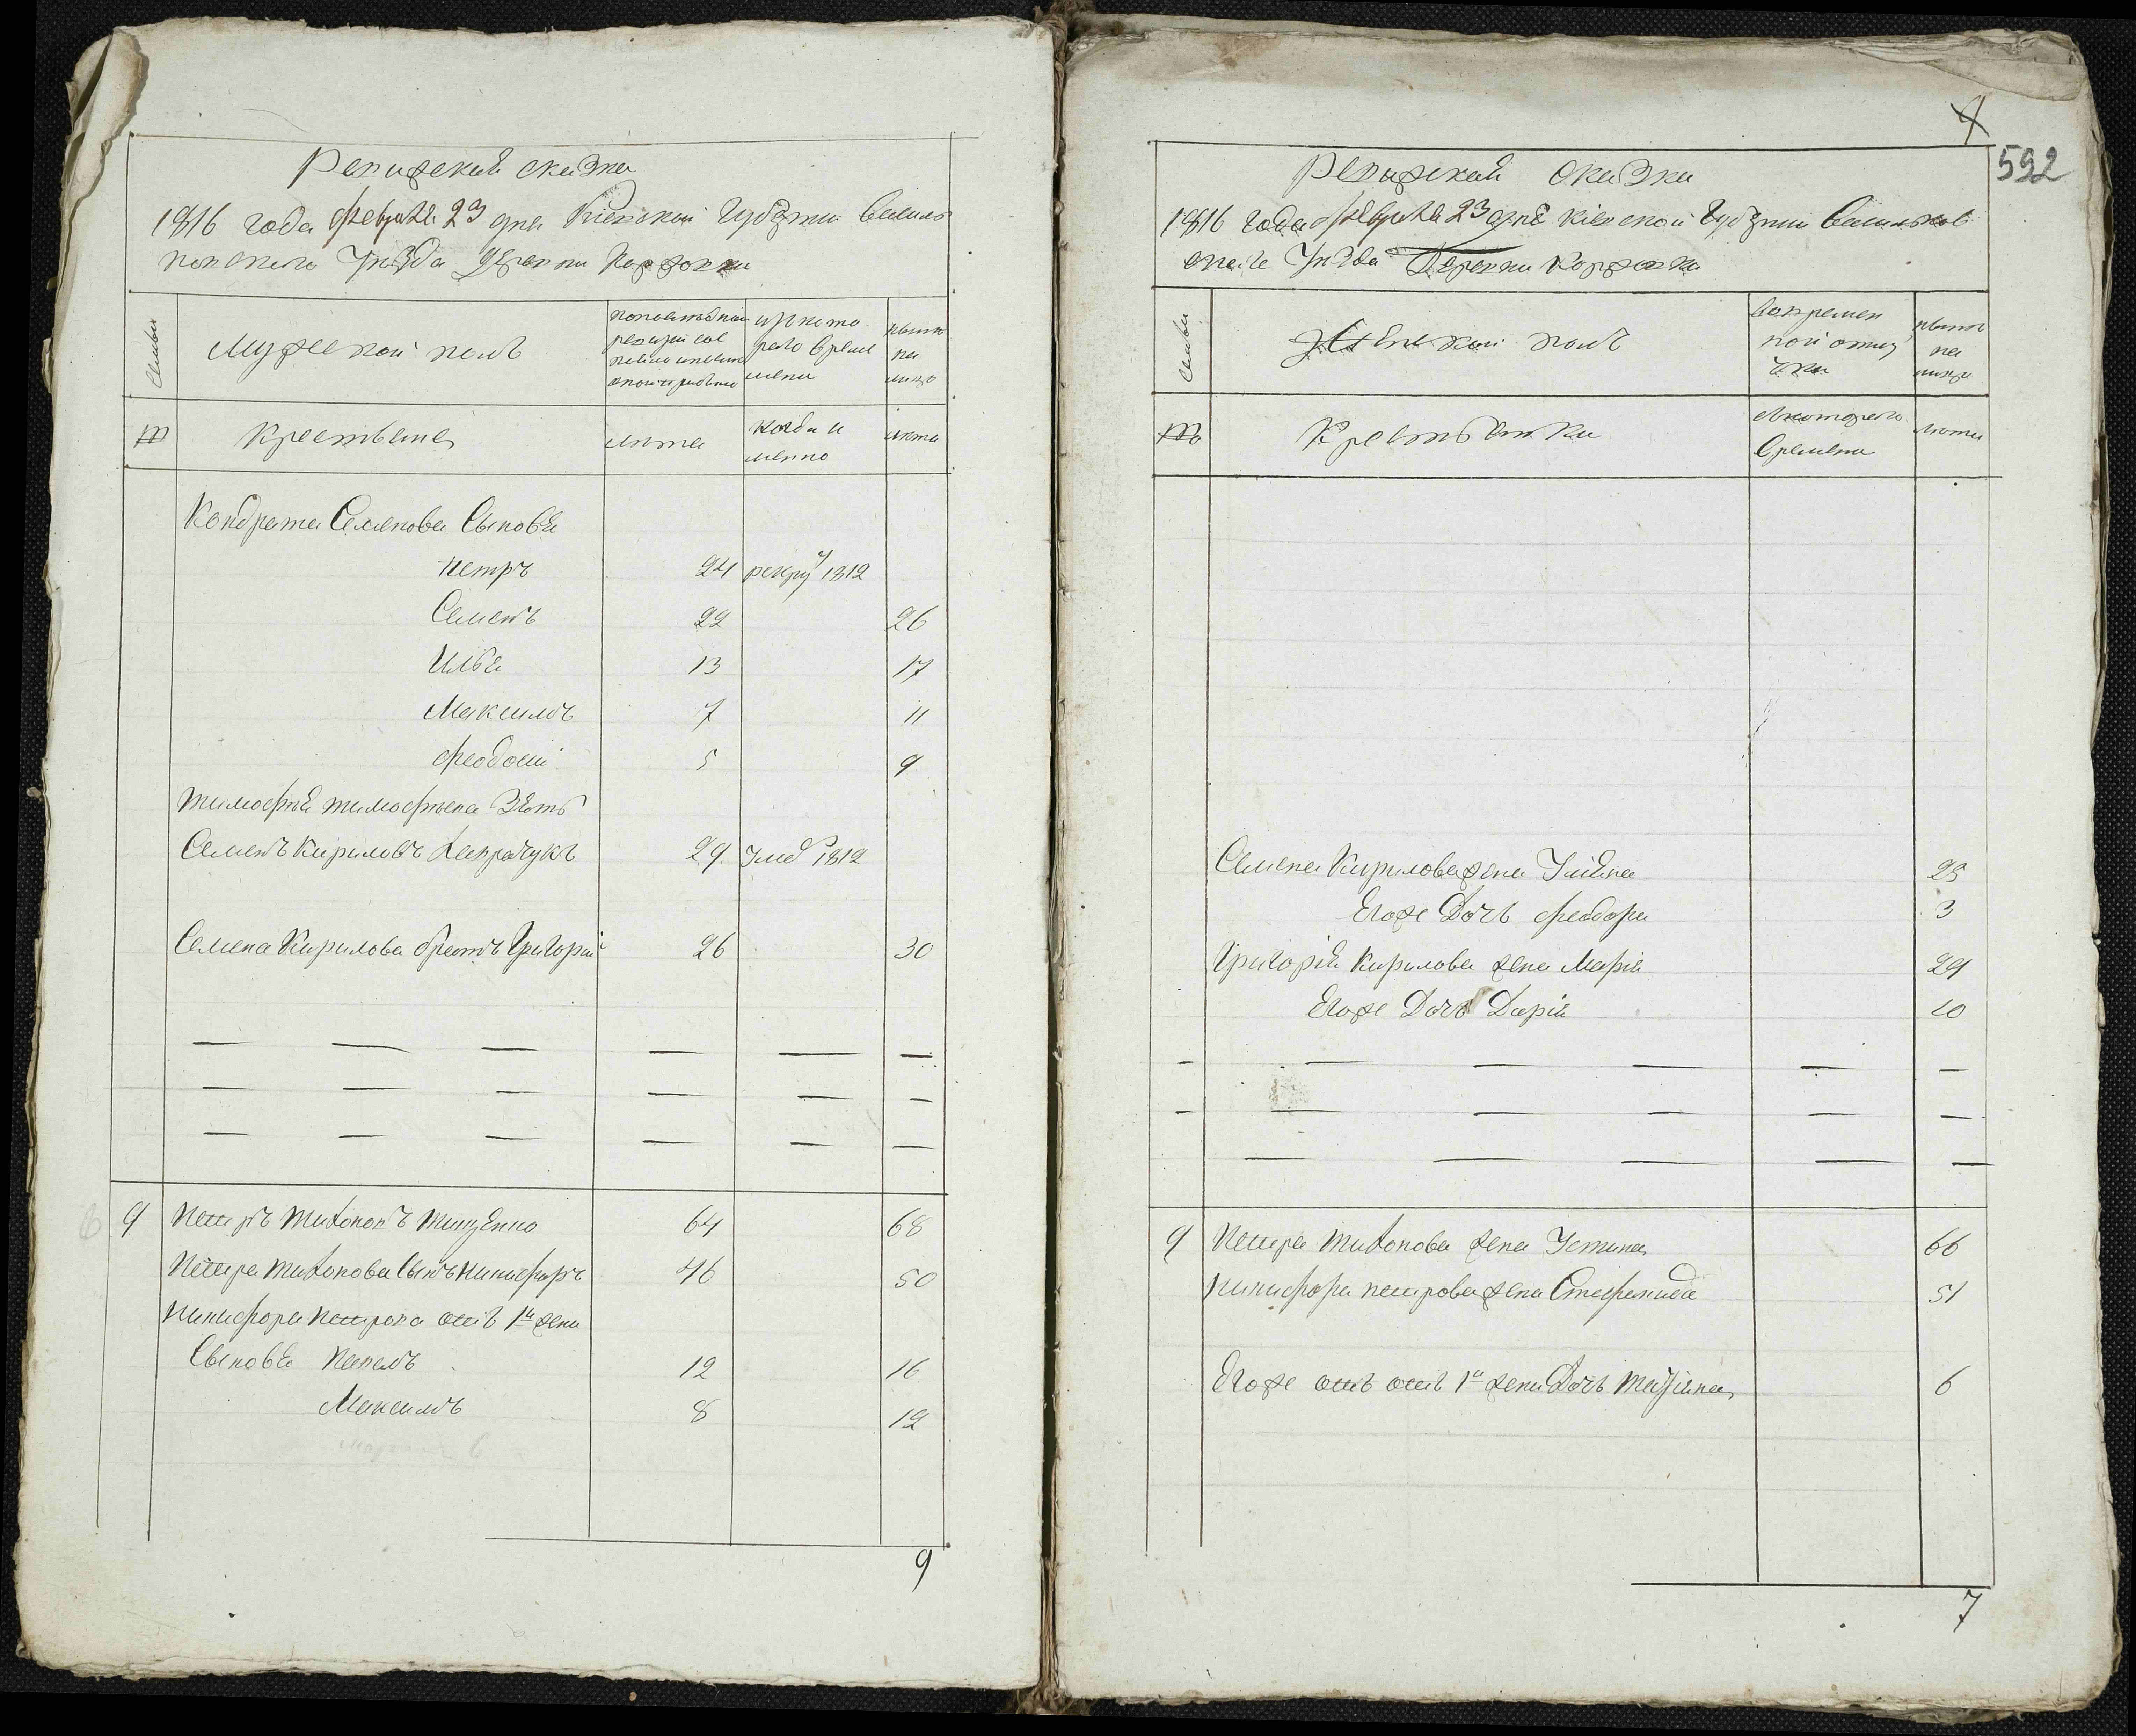 Ревижская сказка
1816 года февраля 23 дня Кіевской Губернии Василь
ковского Уѣзда Деревни Каржовки
Семьи
Мужеской полъ
По последней
ревизіи со
стояло и после
оной прибыло
Изъ того
числа выбыло
Ныне
на
лицо
№
Крестьяне
лѣта
когда и
менно
лѣта
Кондрата Семенова Сыновья
Петръ 24 рекру 1812
Семенъ 22 26
Илья 13 17
Максимъ 7 11
Феодосій 5 9
Тимофѣя Тимофѣева Зять
Семенъ Кириловъ 29 Умер 1812
Семена Кирилова братъ Григорій 26 30
9 Петръ Тихоновъ Тищенко 64 68
Петра Тихонова Сынъ Никифоръ 46 50
Никифора Петрова отъ 1й жены
Сыновья Павелъ 12 16
Максимъ 8 12
9
4
592
Ревижская Сказка
1816 года февраля 23 дня Кіевской Губернии Васильков
скаго Уѣзда Деревни Каржовки
Семьи
Женской полъ
Во времен
ной отлуч
ке
Ныне
на
лицо
№
Крестьянки
Съ котораго
времени
лѣта
Семена Кирилова жена Ульяна 25
Егоже Дочь Феодора 3
Григорія Кирилова жена Марія 29
Егоже Дочь Дарія 10
9 Петра Тихонова жена Устина 66
Никифора Петрова жена Стефанида 51
Егоже отъ 1й жены Дочь Татіяна 6
7